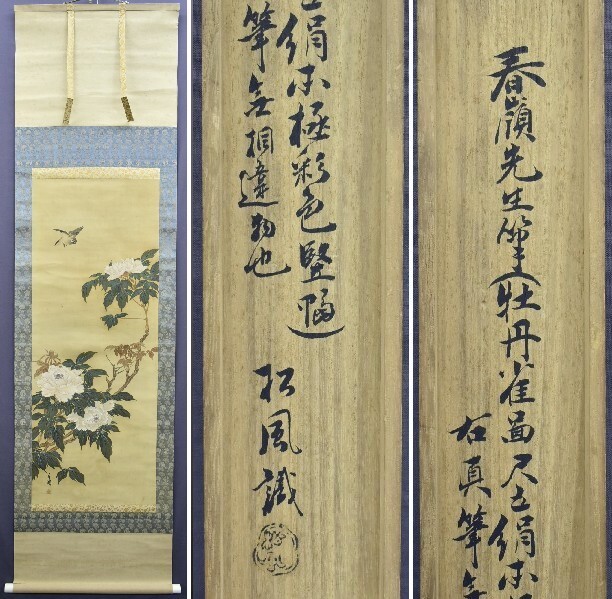 春嶺先生筆(牡丹雀図尺五絹本
右真筆無
五絹本極彩色竪幅)
筆無相違物也
松風識